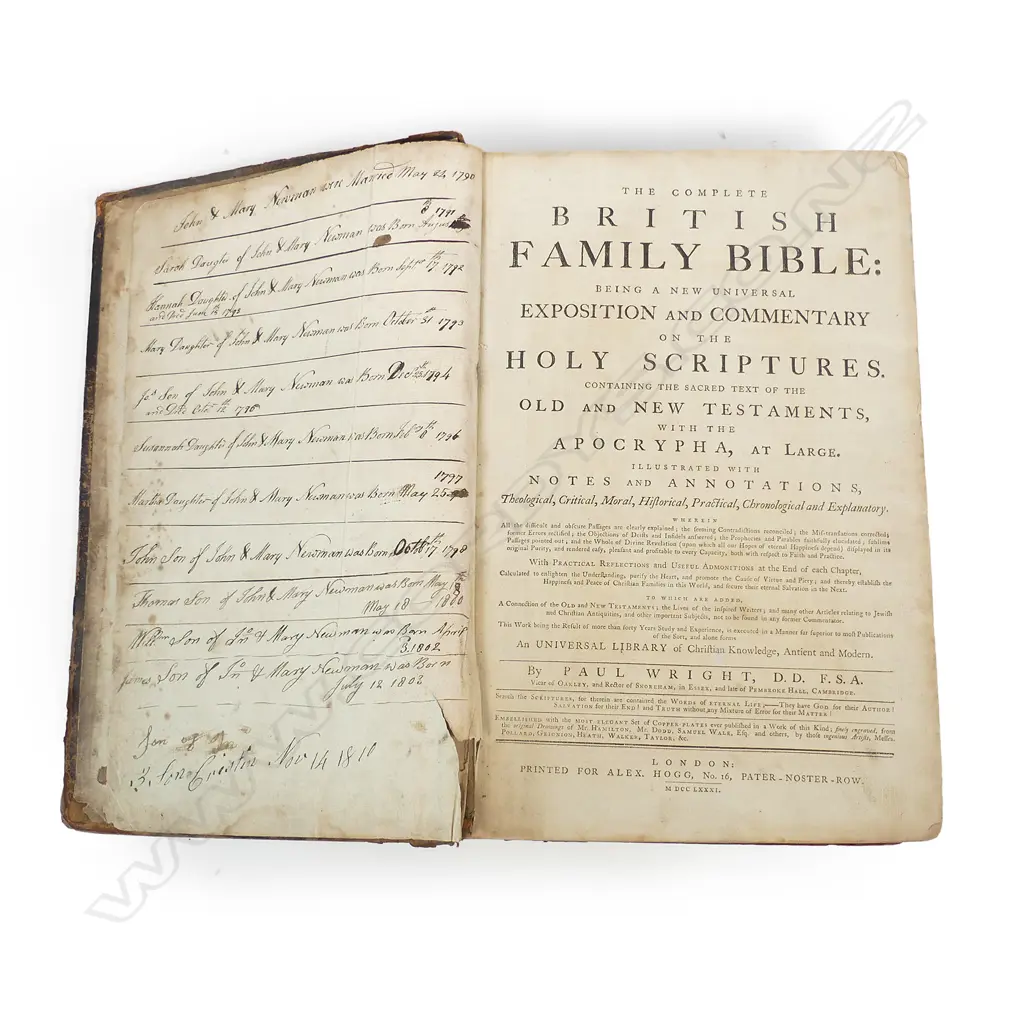 John & Mary Newman were Married May 24 1790
Sarah Daughter of John & Mary Newman Was Born August 8 1791
Hannah Daughter of John & Mary Newman was Born Septr 17th 1792
and Died June 12th 1793
Mary Daughter of John & Mary Newman was Born October 31st 1793
Son of John & Mary Newman was Born Decr 25th 1794
Susannah Daughter of John & Mary Newman was Born Feb 8th 1796
1797
Daughter of John & Mary Newman was Born May 25
John Son of John & Mary Newman was Born Octobr 17th 1798
Thomas Son of John & Mary Newman was Born May 18
May 18 1800
Willm Son of Jno & Mary Newman was Born April
3 1802
James Son of Jno & Mary Newman was Born
July 12 1802
Son of
Nov 14 1810
THE COMPLETE
BRITISH
FAMILY BIBLE:
BEING A NEW UNIVERSAL
EXPOSITION AND COMMENTARY
ON THE
HOLY SCRIPTURES.
CONTAINING THE SACRED TEXT OF THE
OLD AND NEW TESTAMENTS,
WITH THE
APOCRYPHA, AT LARGE.
ILLUSTRATED WITH
NOTES AND ANNOTATIONS,
Theological, Critical, Moral, Historical, Practical, Chronological and Explanatory.
WHEREIN
All the difficult and obscure Passages are clearly explained; the seeming Contradictions reconciled; the Mis-translations corrected;
former Errors rectified; the Objections of Deists and Infidels answered; the Prophecies and Parables faithfully elucidated; sublime
Passages pointed out; and the Whole of Divine Revelation (upon which all our Hopes of eternal Happiness depend) displayed in its
original Purity, and rendered easy, pleasant and profitable to every Capacity, both with respect to Faith and Practice.
With PRACTICAL REFLECTIONS and USEFUL ADMONITIONS at the End of each Chapter,
Calculated to enlighten the Understanding, purify the Heart, and promote the Cause of Virtue and Piety; and thereby establish the
Happiness and Peace of Christian Families in this World, and secure their eternal Salvation in the Next.
TO WHICH ARE ADDED,
A Connection of the OLD and NEW TESTAMENTS; the Lives of the inspired Writers; and many other Articles relating to Jewish
and Christian Antiquities, and other important Subjects, not to be found in any former Commentator.
This Work being the Result of more than forty Years Study and Experience, is executed in a Manner far superior to most Publications
of the Sort, and alone forms
An UNIVERSAL LIBRARY of Christian Knowledge, Antient and Modern.
By PAUL WRIGHT, D.D. F.S.A.
Vicar of OAKLEY, and Rector of SNOREHAM, in ESSEX, and late of PEMBROKE HALL, CAMBRIDGE.
Search the SCRIPTURES, for therein are contained the WORDS of ETERNAL LIFE;——They have GOD for their AUTHOR!
SALVATION for their END! and TRUTH without any Mixture of Error for their MATTER!
EMBELLISHED with the MOST ELEGANT Set of COPPER-PLATES ever published in a Work of this Kind; finely engraved, from
the original Drawings of Mr. HAMILTON, Mr. DODD, SAMUEL WALE, Esq; and others, by those ingenious Artists, Messrs.
POLLARD, GRIGNION, HEATH, WALKER, TAYLOR, &c.
LONDON:
PRINTED FOR ALEX. HOGG, No. 16, PATER-NOSTER-ROW.
M DCC LXXXI.